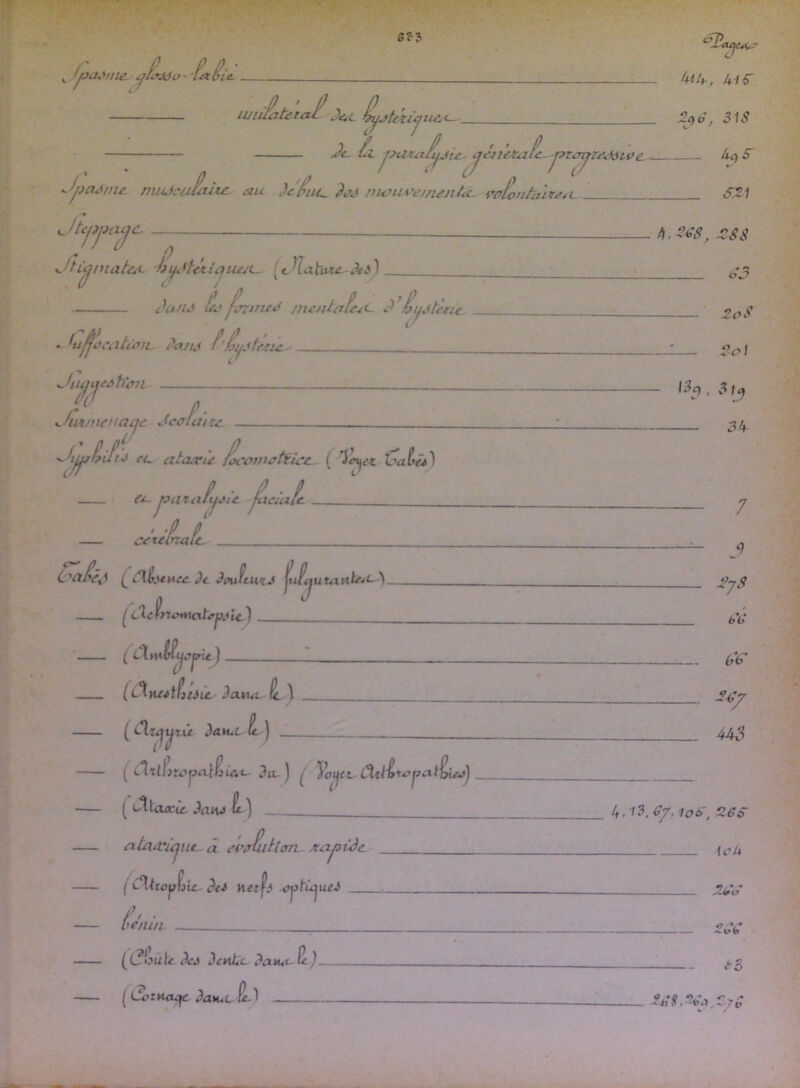 623
Pages
Spasme glosso-labié 414, 415
— unilatéral des hystériques 296, 318
— — de la paralysie générale progressive 495
Spasme musculaire au début des mouvements volontaires 521
Steppage 4, 268, 288
Stigmates hystériques (Nature des) 63
— dans les formes mentales d'hystérie 208
Suffocation dans l'hystérie 201
Suggestion 139, 319
Surmenage scolaire 34
Syphilis et ataxie locomotrice (Voyez Tabès)
— et paralysie faciale 7
— cérébrale 9
Tabès (Absence de douleurs fulgurantes) 278
— (Achromatopsie) 66
— (Amblyopie) 66
— (Anesthésie dans le) 267
— (Argyrie dans le) 443
— (Arthropathies du) (Voyez Arthropathies)
— (Ataxie dans le) 4, 13, 67, 105, 265
— ataxique à évolution rapide 104
— (Atrophie des nerfs optiques 266
— bénin 266
— (Chûte des dents dans le) 83
— (Cornage dans le) 268, 269, 276